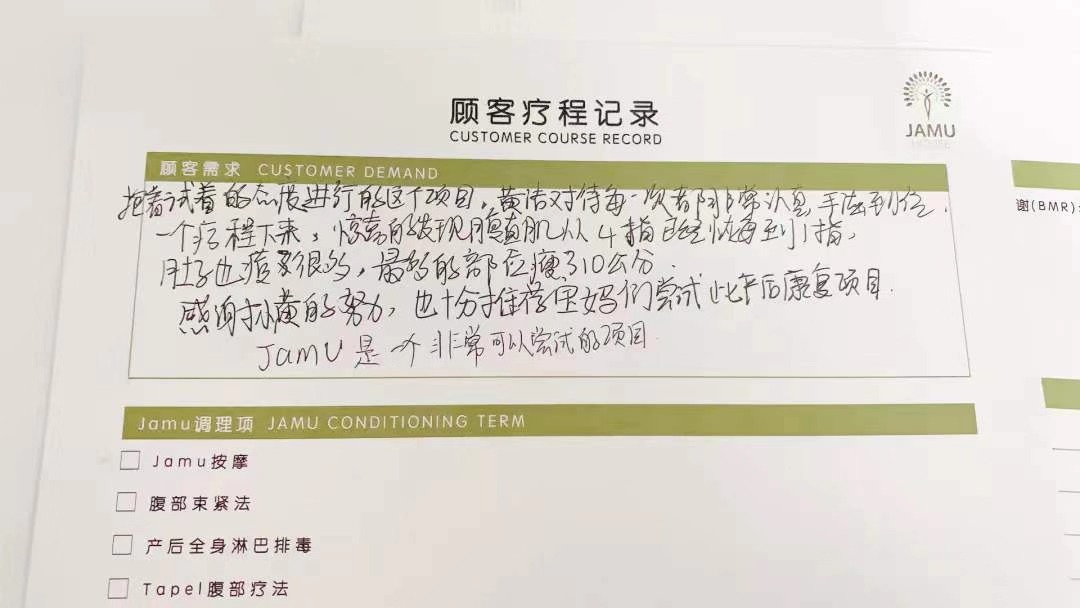 顾客疗程记录
CUSTOMER COURSE RECORD
JAMU
HOUSE
顾客需求 CUSTOMER DEMAND
抱着试着的态度进行的这个项目,黄洁对待每一次都非常认真,手法到位.
一个疗程下来,惊喜的发现腹直肌从4指已经恢复到1指,
肚子也瘦了很多,最多的部位瘦了10公分.
感谢小黄的努力,也十分推荐宝妈们尝试此产后康复项目.
JamU是一个非常可以尝试的项目.
谢(BMR):
Jamu调理项 JAMU CONDITIONING TERM
Jamu按摩
腹部束紧法
产后全身淋巴排毒
Tapel腹部疗法